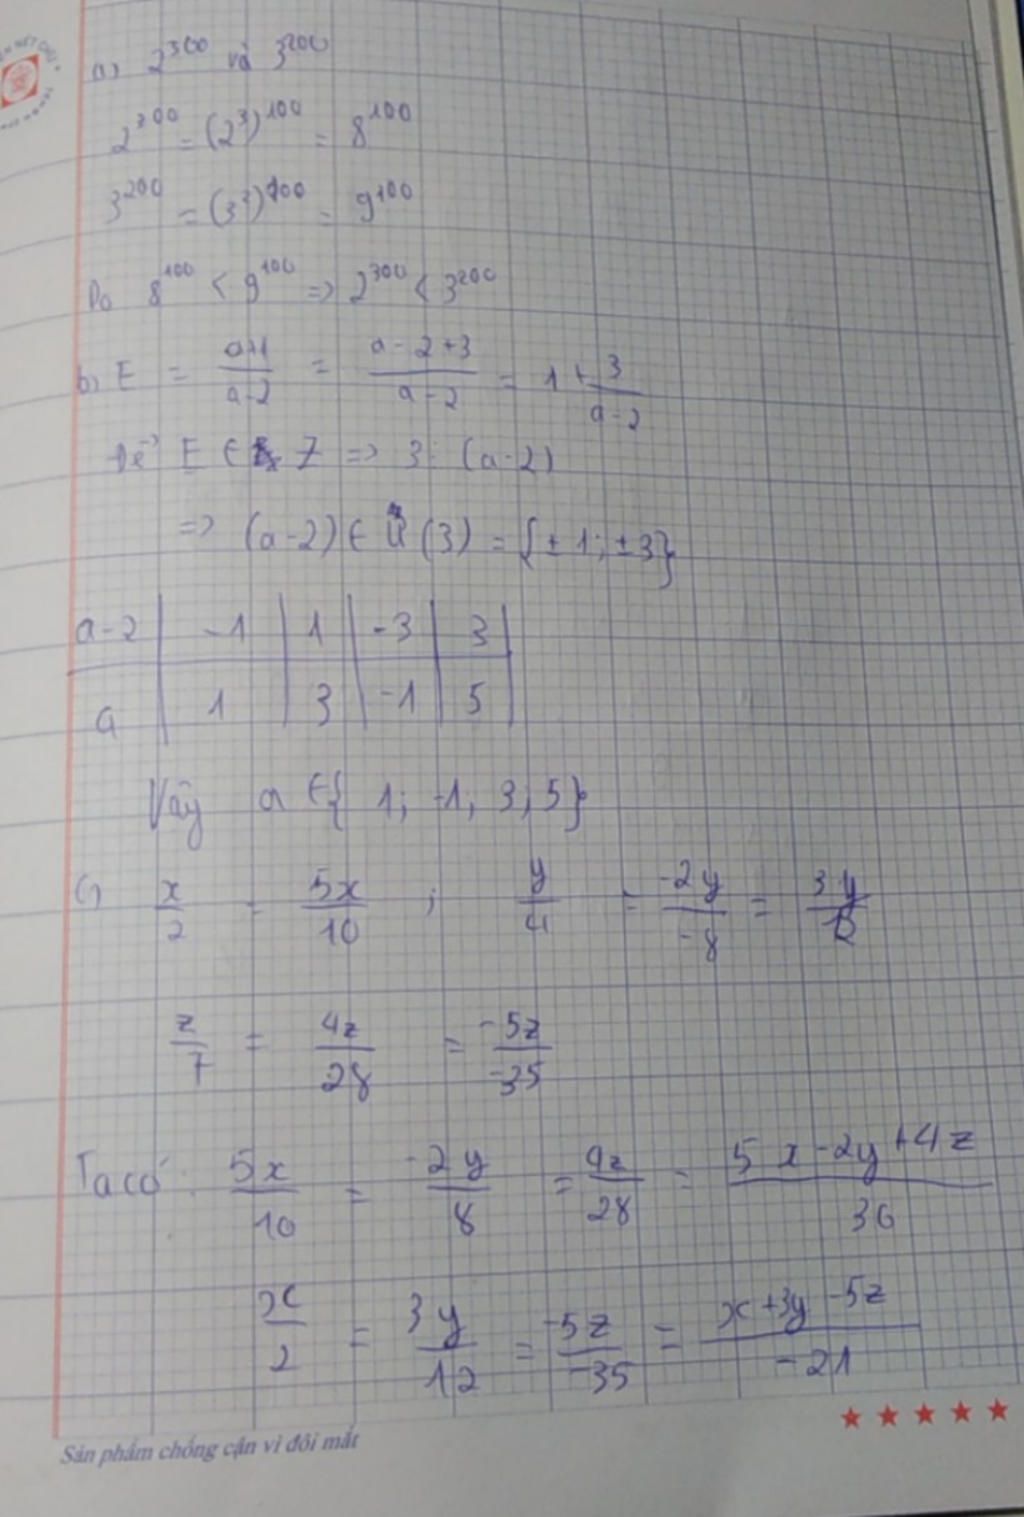 a) 2³⁰⁰ và 3²⁰⁰
2³⁰⁰ = (2³)¹⁰⁰ = 8¹⁰⁰
3²⁰⁰ = (3²)¹⁰⁰ = 9¹⁰⁰
Do 8¹⁰⁰ < 9¹⁰⁰ => 2³⁰⁰ < 3²⁰⁰
b) E = (a+1)/(a-2) = (a-2+3)/(a-2) = 1 + 3/(a-2)
Để E ∈ Z => 3 ⋮ (a-2)
=> (a-2) ∈ Ư(3) = {±1; ±3}
a-2 | -1 | 1 | -3 | 3
a | 1 | 3 | -1 | 5
Vậy a ∈ {1; -1; 3; 5}
c) x/2 = 5x/10 ; y/4 = -2y/-8 = 3y/12
z/7 = 4z/28 = -5z/-35
Ta có: 5x/10 = -2y/8 = 4z/28 = 5x-2y+4z/30
x/2 = 3y/12 = -5z/-35 = x+3y-5z/-21
Sản phẩm chống cận vì đôi mắt